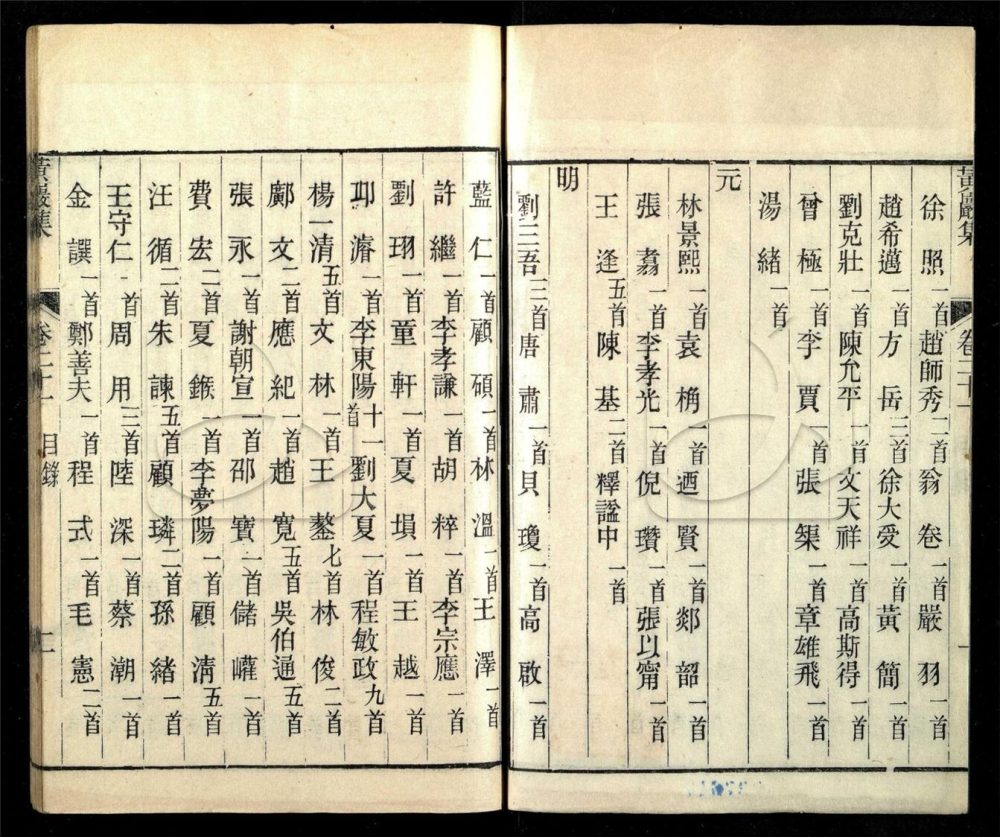 黃巖集 卷二十一
徐照一首 趙師秀二首 翁卷一首 嚴羽一首
趙希邁一首 方岳三首 徐大受一首 黃簡一首
劉克壯一首 陳允平一首 文天祥一首 高斯得一首
曾極一首 李賈一首 張榘一首 章雄飛一首
湯緒一首
元
林景熙一首 袁桷一首 迺賢一首 郯韶一首
張翥一首 李孝光一首 倪瓚一首 張以甯一首
王逢五首 陳基二首 釋謐中一首
明
劉三吾三首 唐肅一首 貝瓊一首 高啟一首
藍仁一首 顧碩一首 林溫一首 王澤一首
許繼一首 李孝謙一首 胡粹一首 李宗應一首
劉珝一首 童軒一首 夏塤一首 王越一首
邱濬一首 李東陽十一首 劉大夏一首 程敏政九首
楊一清五首 文林一首 王鏊七首 林俊二首
鄺文二首 應紀一首 趙寬五首 吳伯通五首
張永一首 謝朝宣一首 邵寶一首 儲巏一首
費宏二首 夏鍭一首 李夢陽一首 顧清五首
汪循二首 朱諫五首 顧璘二首 孫緒一首
王守仁一首 周用三首 陸深一首 蔡潮一首
金譔一首 鄭善夫一首 程式一首 毛憲二首
黃巖集 卷二十 目錄